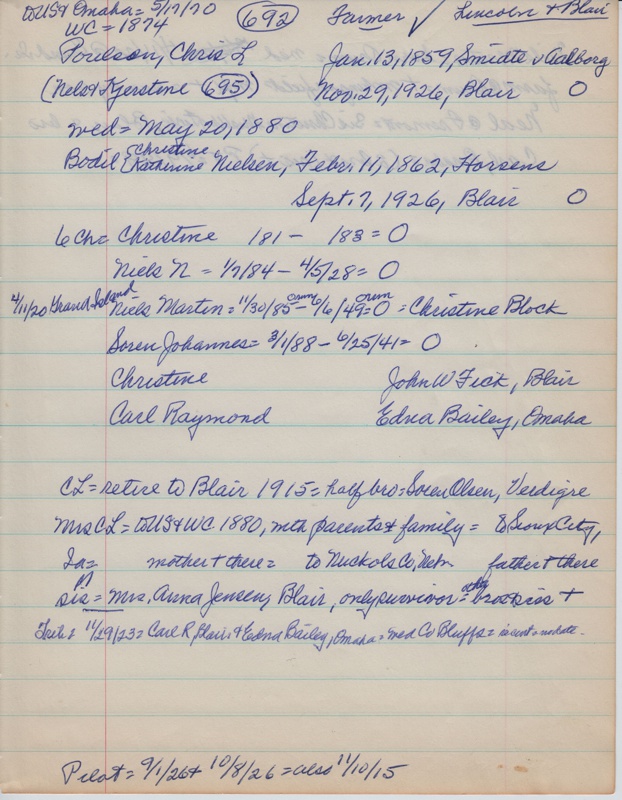 to US & Omaha = 5/17/70 692 Farmer ✓ Lincoln + Blair
WC = 1874
Poulson, Chris L Jan. 13, 1859, Smidte v Aalborg
(Nels & Kjerstene 695) Nov. 29, 1926, Blair O
med = May 20, 1880
Bodil {Christine Katherine Nielsen, Febr. 11, 1862, Horsens
Sept. 7, 1926, Blair O
6 ch = Christine 181 - 183 = O
Niels N = 1/7/84 - 4/5/28 = O
4/11/20 Grand Island Niels Martin = 11/30/85 - 6/6/49 = O = Christine Block
Soren Johannes = 3/1/88 - 6/25/41 = O
Christine John W Fick, Blair
Carl Raymond Edna Bailey, Omaha
CL = retire to Blair 1915 = half bro = Soren Olsen, Verdigre
Mrs CL = to US & WC 1880, with parents & family = to Sioux City,
Ia = mother + there = to Nuckols Co, Nebr father + there
sis = Mrs. Anna Jensen, Blair, only survivor = other bros & sis +
Trib = 11/29/23 = Carl R, Blair, & Edna Bailey, Omaha = med Co Bluffs = recent = nodate.
Pilot = 9/1/26 + 10/8/26 = also 11/10/15